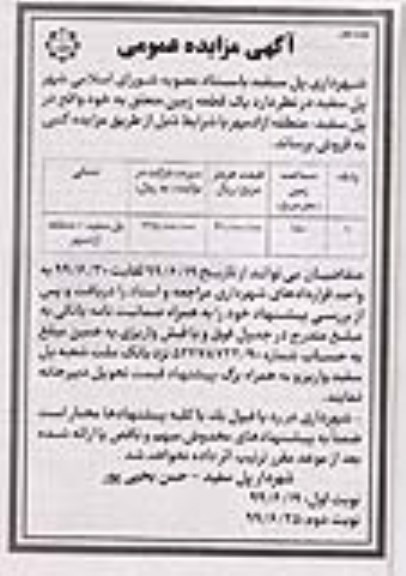 آگهی مزایده عمومی
شهرداری پل سفید باستناد مصوبه شورای اسلامی شهر
پل سفید در نظر دارد یک قطعه زمین متعلق به خود واقع در
پل سفید، منطقه آزادمهر با شرایط ذیل از طریق مزایده کتبی
به فروش برساند.
ردیف مساحت زمین قیمت هر متر مربع/ریال نشانی
۱ پل سفید - منطقه
متقاضیان می توانند از تاریخ ۹۹/۶/۱۹ لغایت ۹۹/۶/۳۰ به
واحد قراردادهای شهرداری مراجعه و اسناد را دریافت و پس
از بررسی پیشنهاد خود را به همراه ضمانت نامه بانکی به
مبلغ مندرج در جدول فوق و یا فیش واریزی به همین مبلغ
به حساب شماره نزد بانک ملت شعبه پل
سفید واریز و به همراه برگ پیشنهاد قیمت تحویل دبیرخانه
نمایند.
- شهرداری در رد یا قبول یک یا کلیه پیشنهادها مختار است
ضمناً به پیشنهادهای مخدوش مبهم و ناقص یا ارائه شده
بعد از موعد مقرر ترتیب اثر داده نخواهد شد.
شهردار پل سفید - حسن یحیی پور
نوبت اول: ۹۹/۶/۱۹
نوبت دوم: ۹۹/۶/۲۵